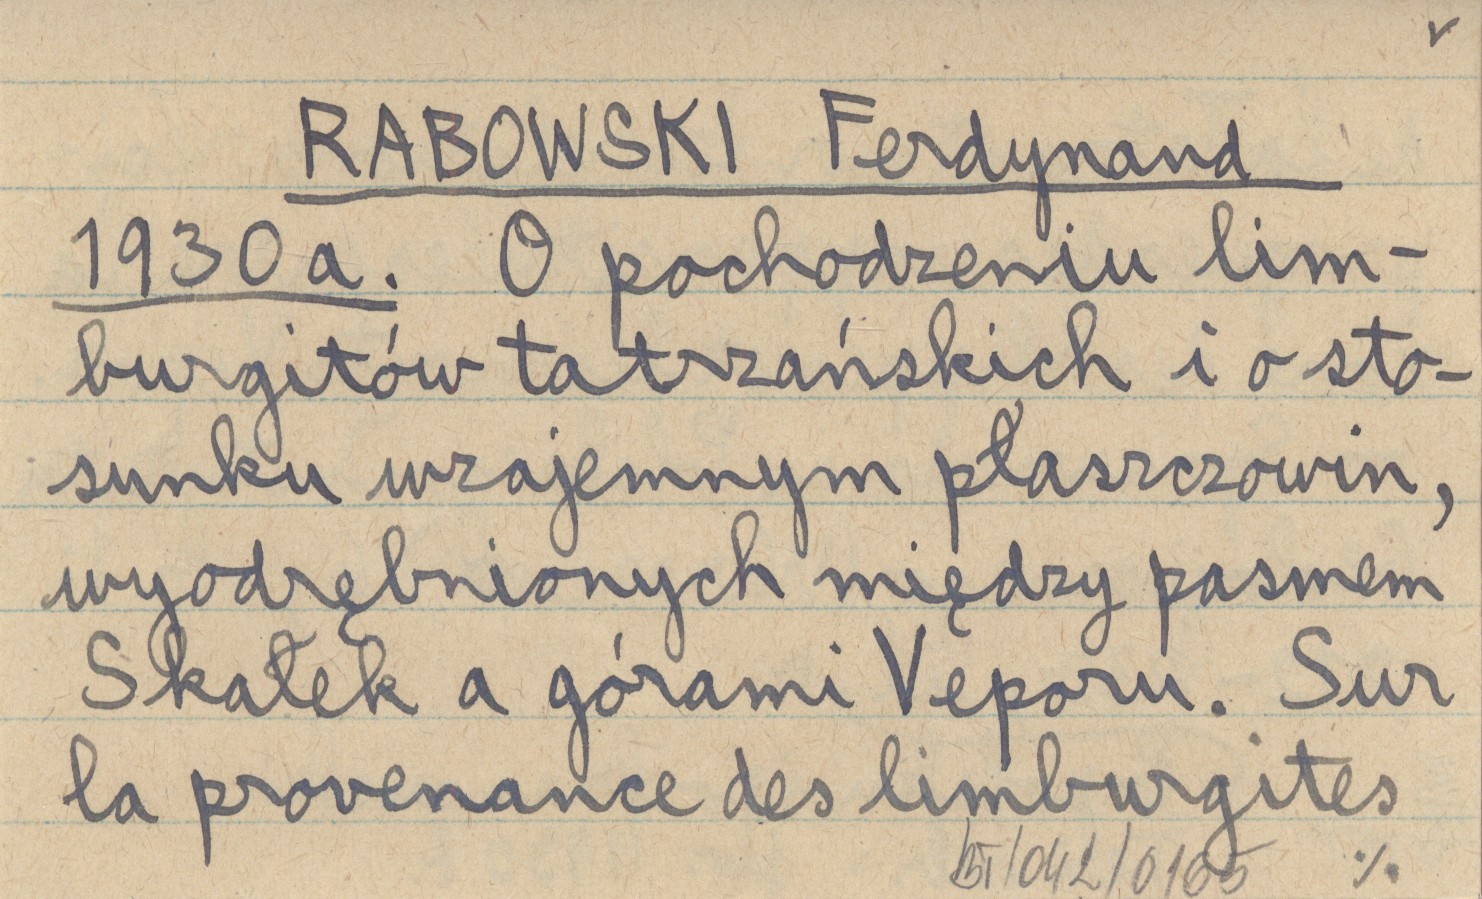 RABOWSKI Ferdynand
1930a. O pochodzeniu lim-
burgitów tatrzańskich i o sto-
sunku wzajemnym płaszczowin,
wyodrębnionych między pasmem
Skałek a górami Veporu. Sur
la provenance des limburgites
BT/042/0165 ·/.